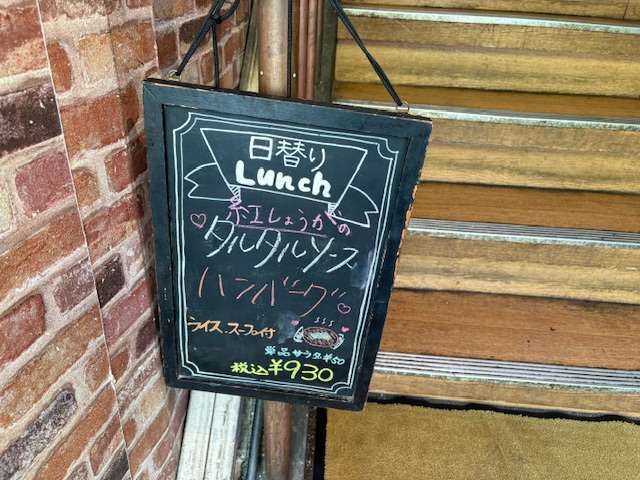 日替り
Lunch
紅しょうがの
タルタルソース
ハンバーグ
ライス.スープ付
単品サラダ¥50
税込¥930